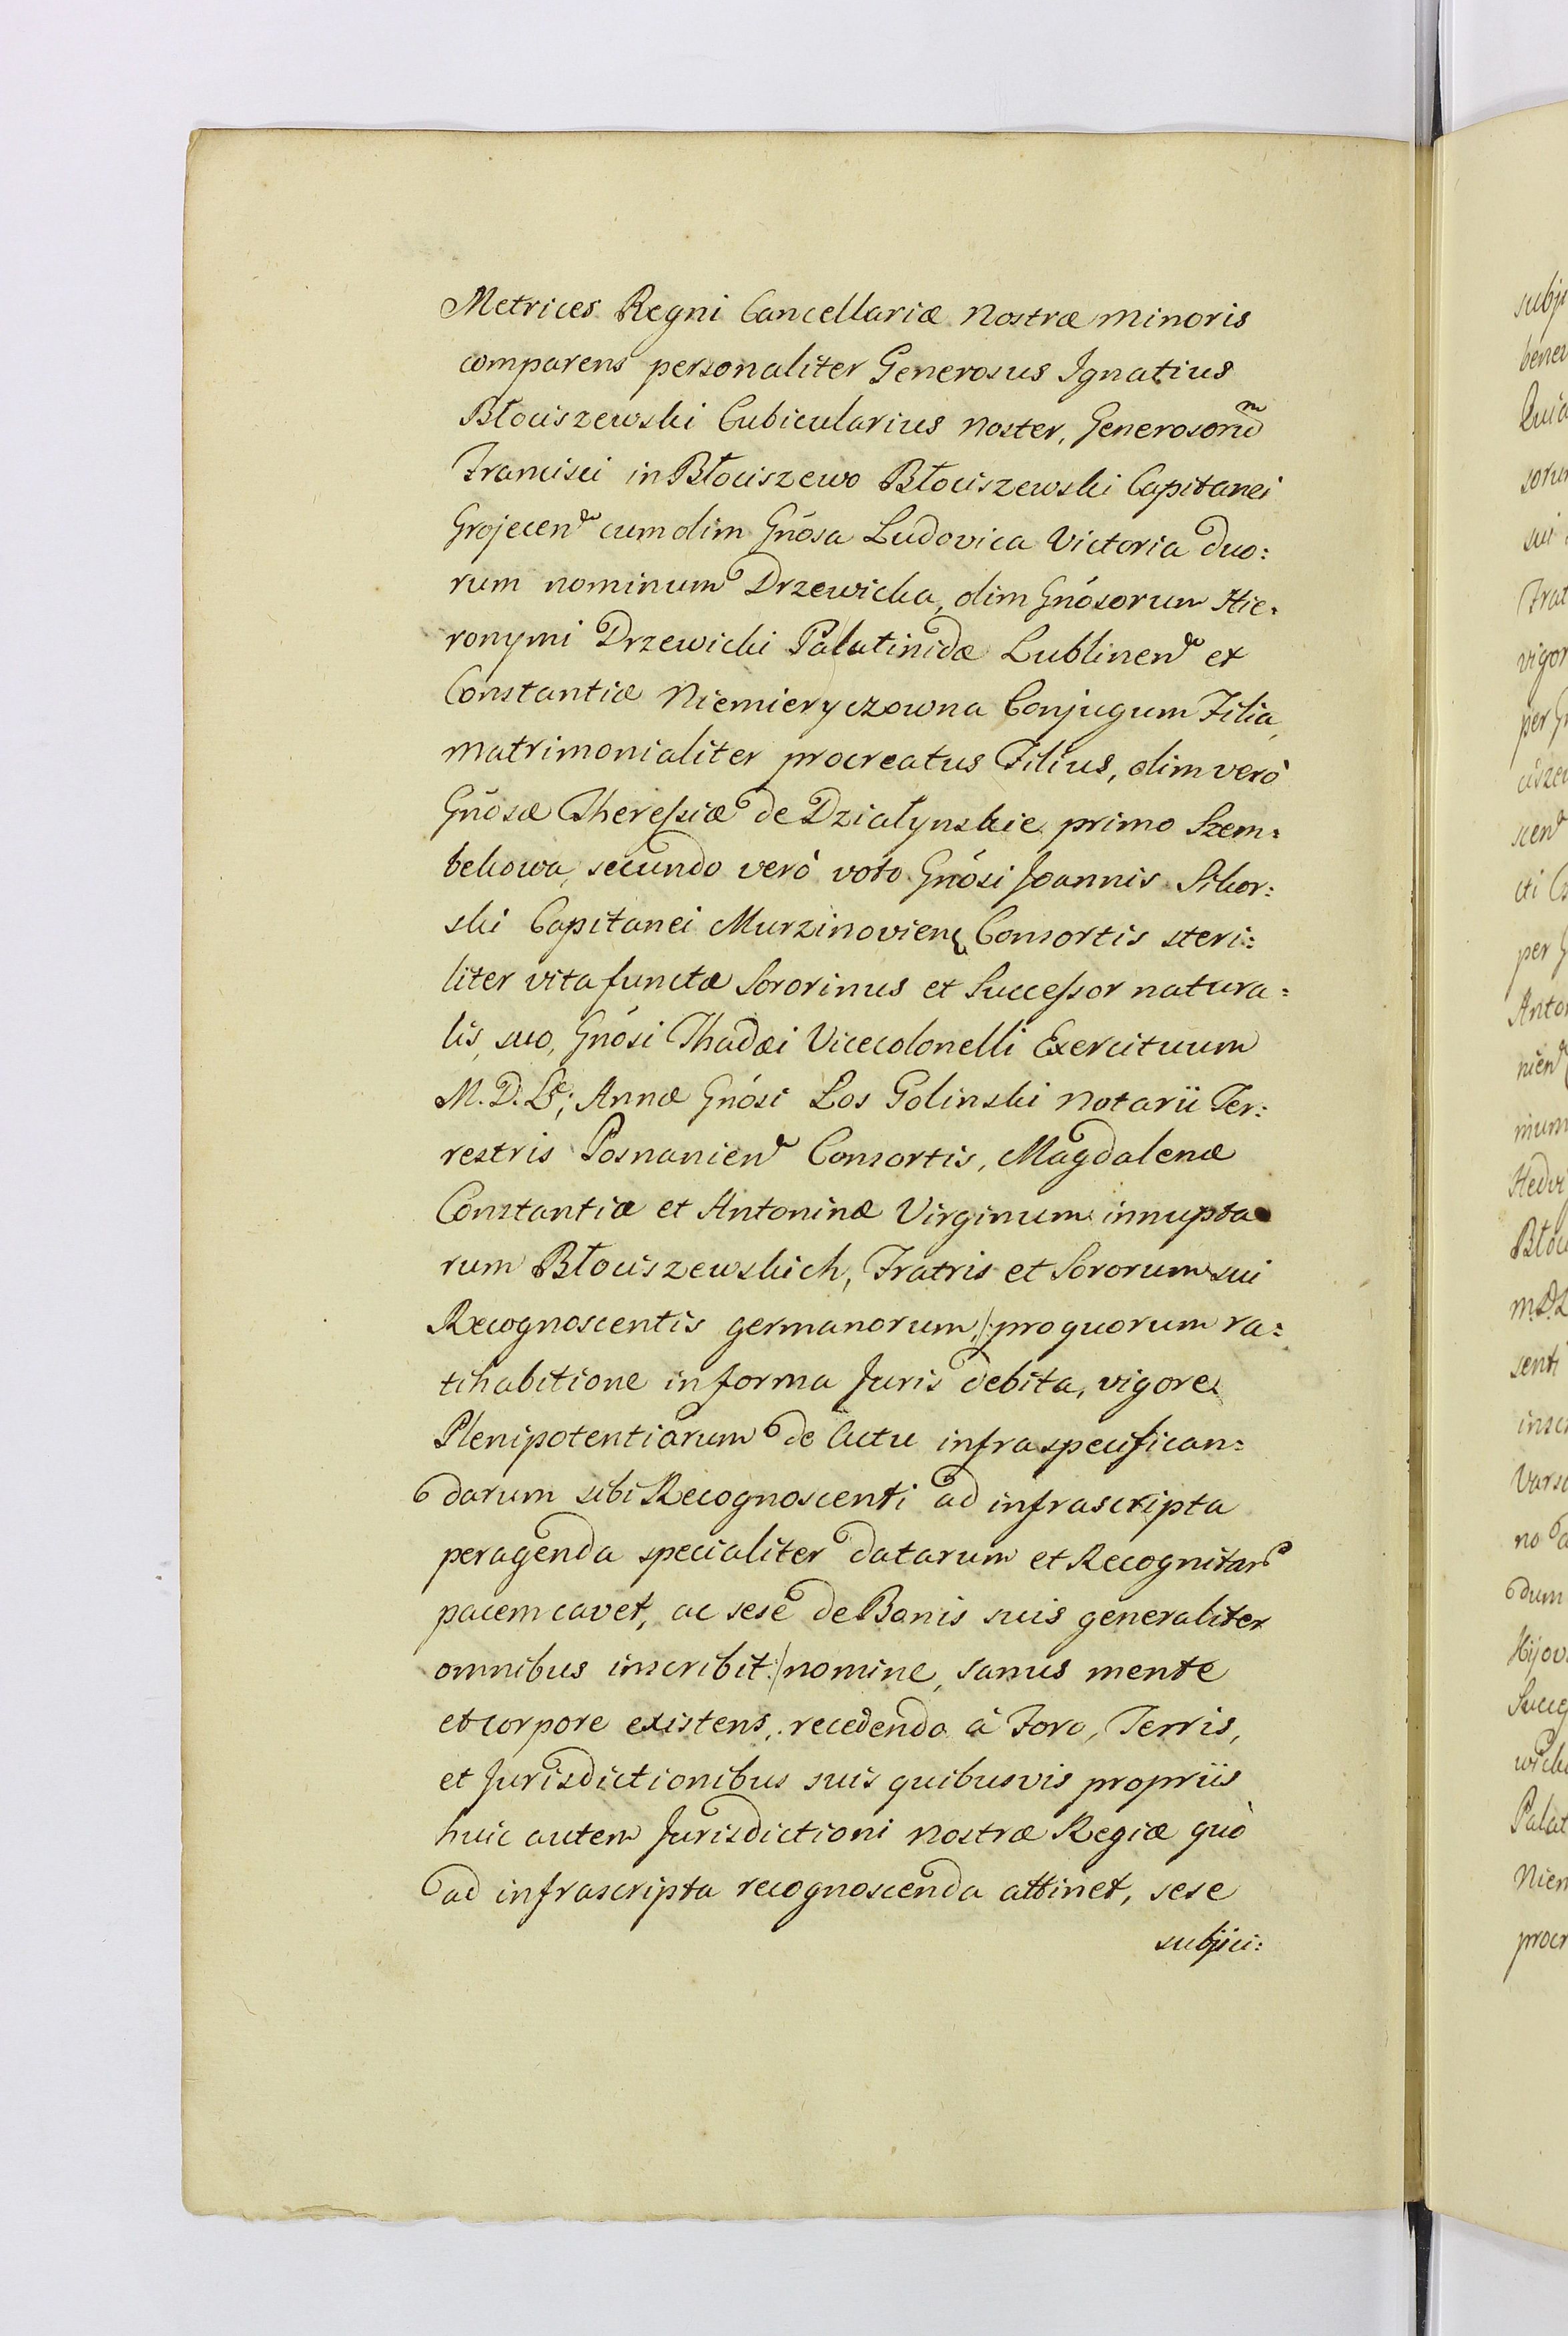 Metrices Regni Cancellariæ Nostræ Minoris
comparens personaliter Generosus Ignatius
Błociszewski Cubicularius Noster, Generosorum
Francisci in Błociszewo Błociszewski Capitanei
Grojecen cum olim Gnósa Ludovica Victoria duo:
rum nominum Drzewicka, olim Gnósorum Hie:
ronymi Drzewicki Palatinidæ Lublinen et
Constantiæ Niemieryczowna Conjugum Filia,
matrimonialiter procreatus Filius, olim verò
Gnósæ Theressiæ de Działynskie primo Szem:
bekowa, secundo verò voto Gnósi Joannis Sikor:
ski Capitanei Murzinovien Consortis steri:
liter vita functæ Sororinus et Successor natura:
lis, suo, Gnósi Thadæi Vicecolonelli Exercituum
M. D. L; Annæ Gnósi Los Golinski Notarii Ter:
restris Posnanien Consortis, Magdalenæ
Constantiæ et Antoninæ Virginum innupta
rum Błociszewskich, Fratris et Sororum sui
Recognoscentis germanorum, /: pro quorum ra:
tihabitione in forma Juris debita, vigore
Plenipotentiarum de Actu infra specifican:
darum sibi Recognoscenti ad infrascripta
peragenda specialiter datarum et Recognitar
pacem cavet, ac sese de Bonis suis generaliter
omnibus inscribit :/ nomine, sanus mente
et corpore existens, recedendo à Foro, Terris,
et Jurisdictionibus suis quibusvis propriis
huic autem Jurisdictioni Nostræ Regiæ quò
ad infrascripta recognoscenda attinet, sese
subjici: